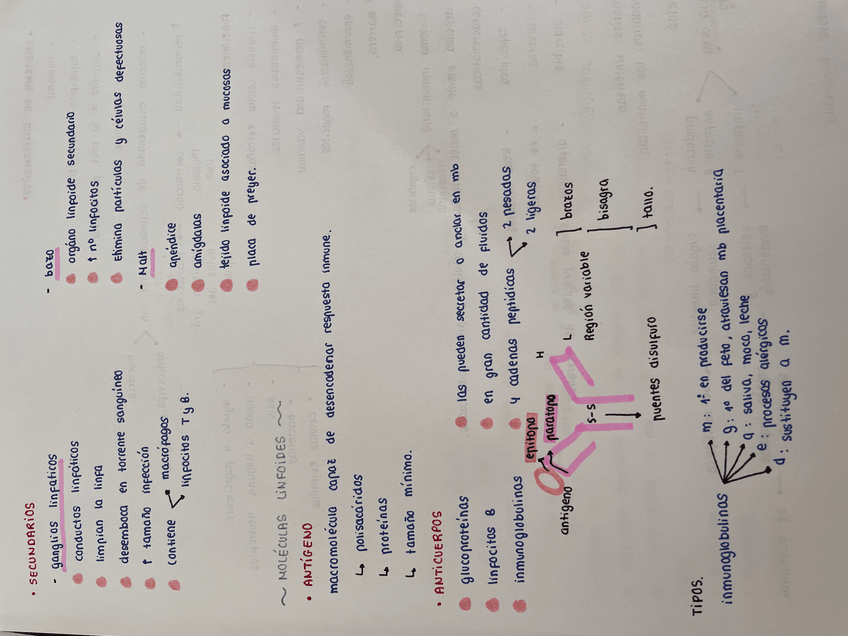 • SECUNDARIOS
- ganglios linfáticos
conductos linfáticos
limpian la linfa
desemboca en torrente sanguíneo
↑ tamaño infección
contiene macrófagos
linfocitos T y B.
- bazo
orgáno linfoide secundario
↑ nº linfocitos
elimina partículas y células defectuosas
- Malt
apéndice
amígdalas
tejido linfoide asociado a mucosas
placa de preyer.
~ MOLÉCULAS LINFOIDES ~
• ANTÍGENO
macromolécula capaz de desencadenar respuesta inmune.
↳ polisacáridos
↳ proteínas
↳ tamaño mínimo.
• ANTICUERPOS
glucoproteínas
linfocitos B
inmunoglobulinas
las pueden secretar o anclar en mb
en gran cantidad de fluidos
4 cadenas peptídicas → 2 pesadas
2 ligeras
epítopo
paratopo
antígeno
H
L
Región variable
S-S
puentes disulfuro
] brazos
] bisagra
] tallo.
TIPOS.
inmunoglobulinas
m: 1ª en producirse
g: 1º del feto, atraviesan mb placentaria
a: saliva, moco, leche
e: procesos alérgicos
d: sustituyen a m.